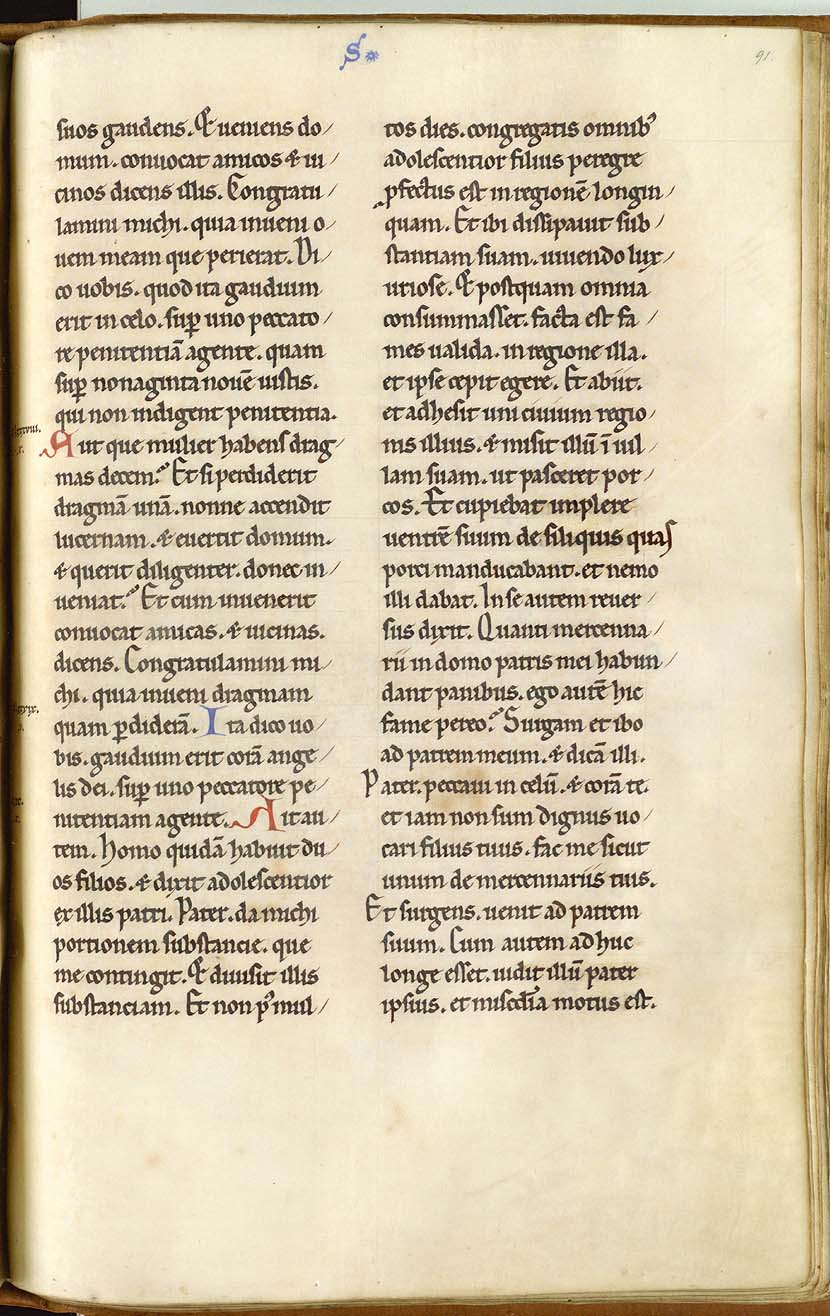 S.
91.
suos gaudens. Et ueniens do/
mum. conuocat amicos & ui/
cinos dicens illis. Congratu/
lamini michi. quia inueni o/
uem meam que perierat. Di/
co uobis. quod ita gaudium
erit in celo. sup̄ uno peccato/
re penitentiā agente. quam
sup̄ nonaginta nouē iustis.
qui non indigent penitentia.
Aut que mulier habens drag/
mas decem? Et si perdiderit
dragmā unā. nonne accendit
lucernam. & euertit domum.
& querit diligenter. donec in/
ueniat? Et cum inuenerit
conuocat amicas. & uicinas.
dicens. Congratulamini mi/
chi. quia inueni dragmam
quam ꝑdiderā. Ita dico uo/
bis. gaudium erit corā ange/
lis dei. sup̄ uno peccatore pe/
nitentiam agente. Ait au/
tem. Homo quidā habuit du/
os filios. & dixit adolescentior
ex illis patri. Pater. da michi
portionem substancie. que
me contingit. Et diuisit illis
substanciam. Et non pꝰ mul/
tos dies. congregatis omnibꝰ
adolescentior filius peregre
ꝓfectus est in regionē longin/
quam. Et ibi dissipauit sub/
stantiam suam. uiuendo lux/
uriose. Et postquam omnia
consummasset. facta est fa/
mes ualida. in regione illa.
et ipse cepit egere. Et abiit.
et adhesit uni ciuium regio/
nis illius. & misit illū ī uil/
lam suam. ut pasceret por/
cos. Et cupiebat implere
uentrē suum de siliquis quas
porci manducabant. et nemo
illi dabat. In se autem reuer/
sus dixit. Quanti mercenna/
rii in domo patris mei habun/
dant panibus. ego autē hic
fame pereo? Surgam et ibo
ad patrem meum. & dicā illi.
Pater. peccaui in celū. & corā te.
et iam non sum dignus uo/
cari filius tuus. fac me sicut
unum de mercennariis tuis.
Et surgens. uenit ad patrem
suum. Cum autem adhuc
longe esset. uidit illū pater
ipsius. et miscd̄ia motus est.